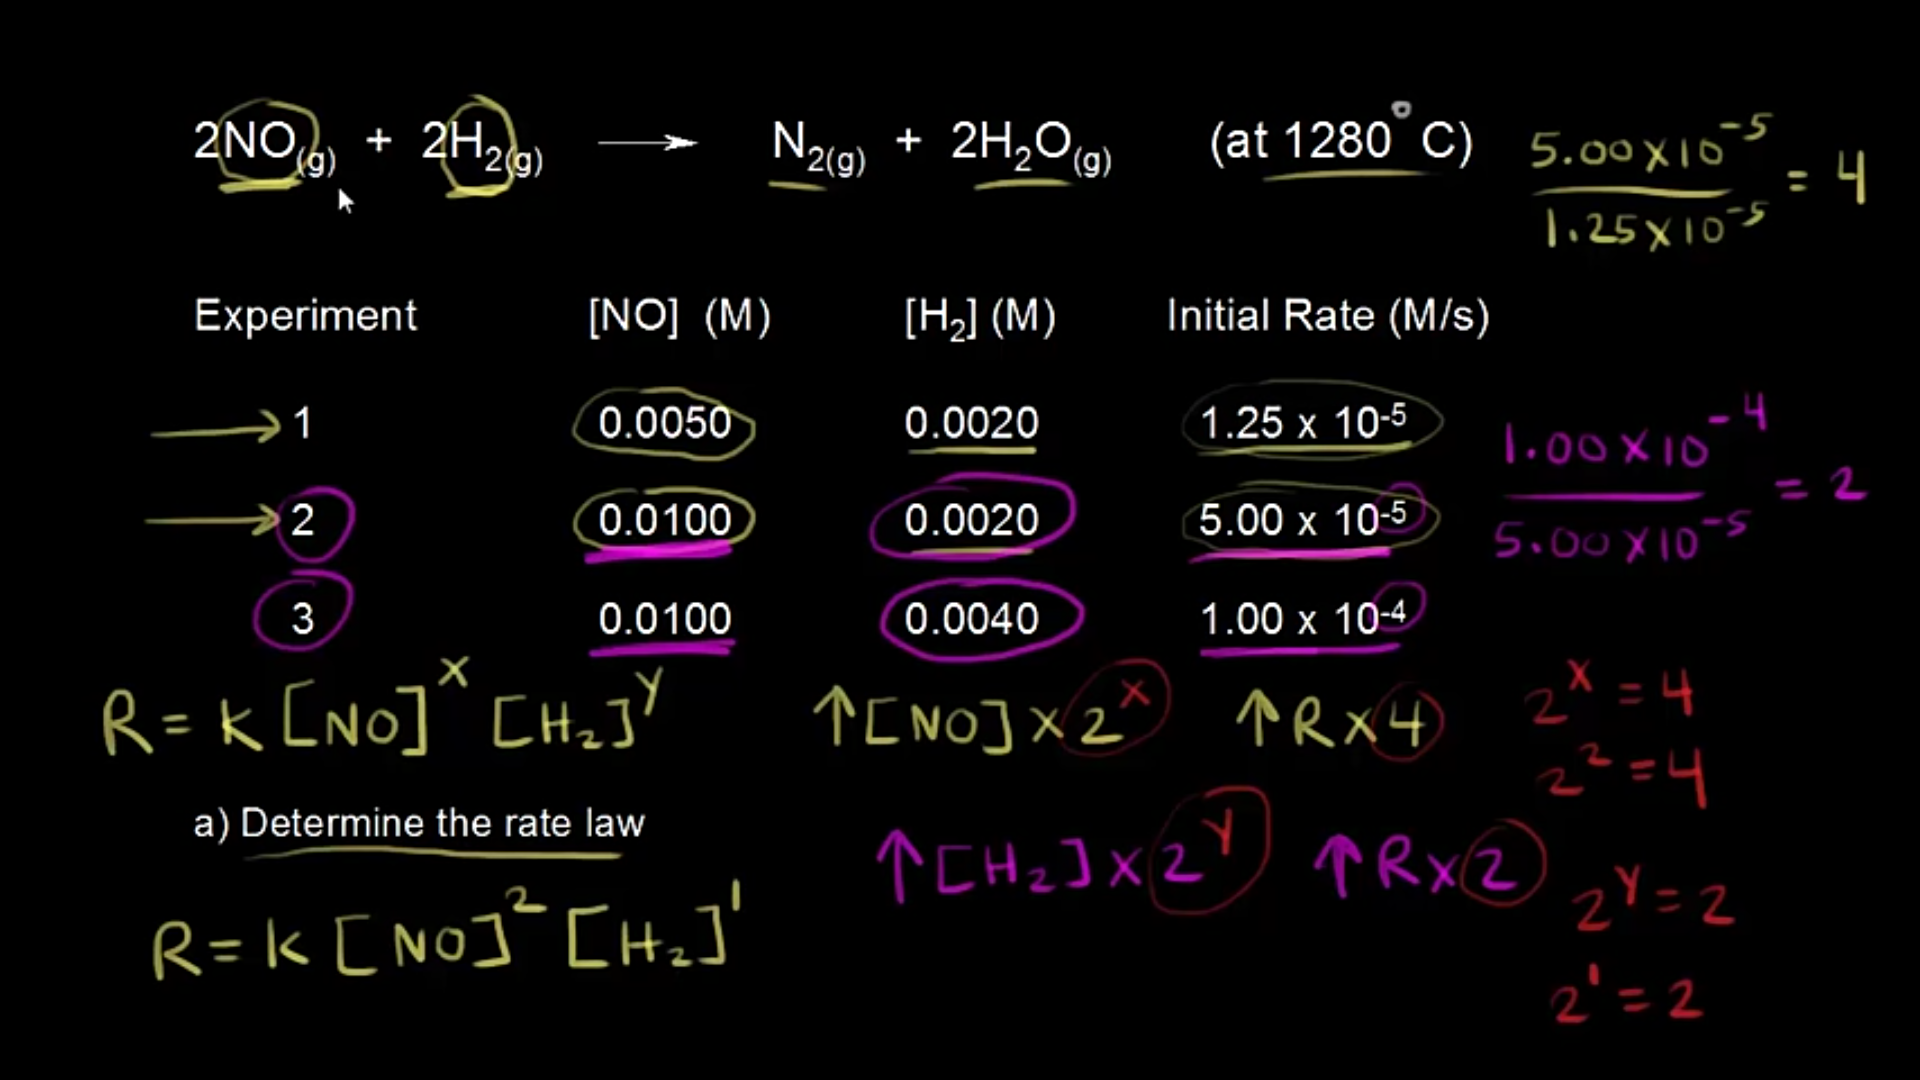 2NO(g) + 2H₂(g) → N₂(g) + 2H₂O(g) (at 1280°C)
5.00 x 10⁻⁵ / 1.25 x 10⁻⁵ = 4
Experiment [NO] (M) [H₂] (M) Initial Rate (M/s)
1 0.0050 0.0020 1.25 x 10⁻⁵
2 0.0100 0.0020 5.00 x 10⁻⁵
1.00 x 10⁻⁴ / 5.00 x 10⁻⁵ = 2
3 0.0100 0.0040 1.00 x 10⁻⁴
R = k [NO]ˣ [H₂]ʸ ↑[NO] x 2ˣ ↑R x 4
2ˣ = 4
2² = 4
a) Determine the rate law
↑[H₂] x 2ʸ ↑R x 2
2ʸ = 2
R = k [NO]² [H₂]¹
2¹ = 2